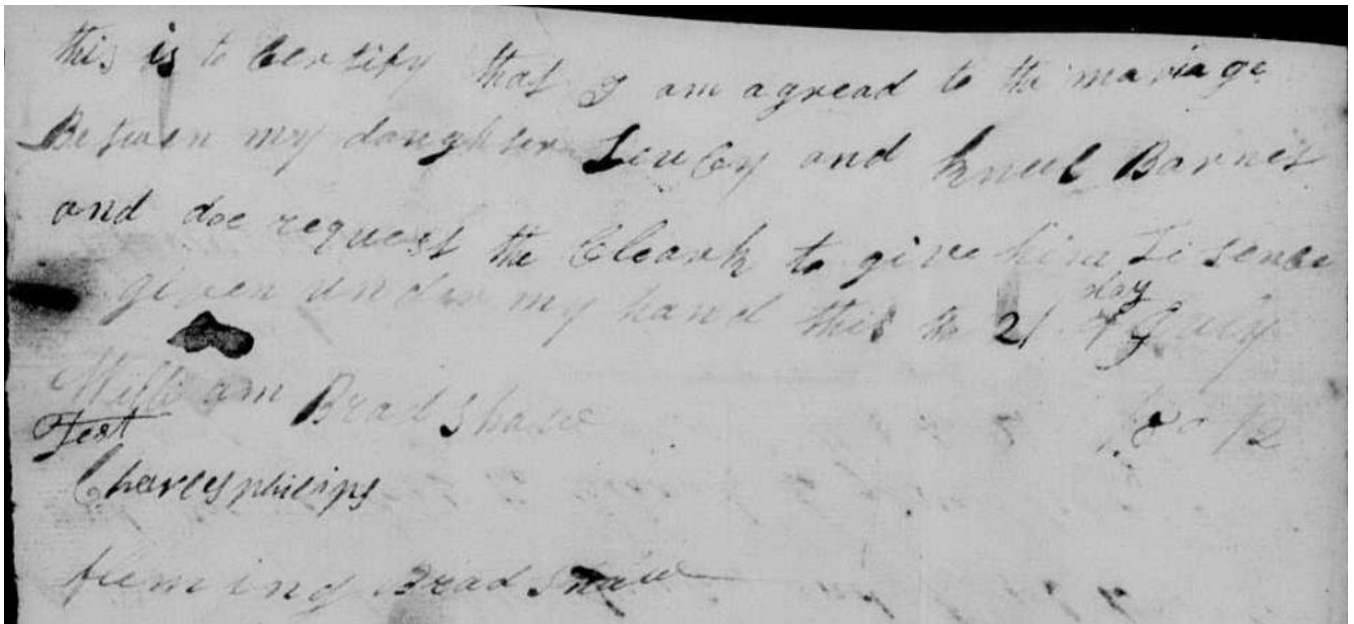 this is to Certify that I am agread to the mariage
Betwen my daughter Leucy and Barnet
and doe request the Cleark to give him Lisence
given under my hand this the 21 day of July
William Bradshaw
Test
Charles philips
fleming Bradshaw